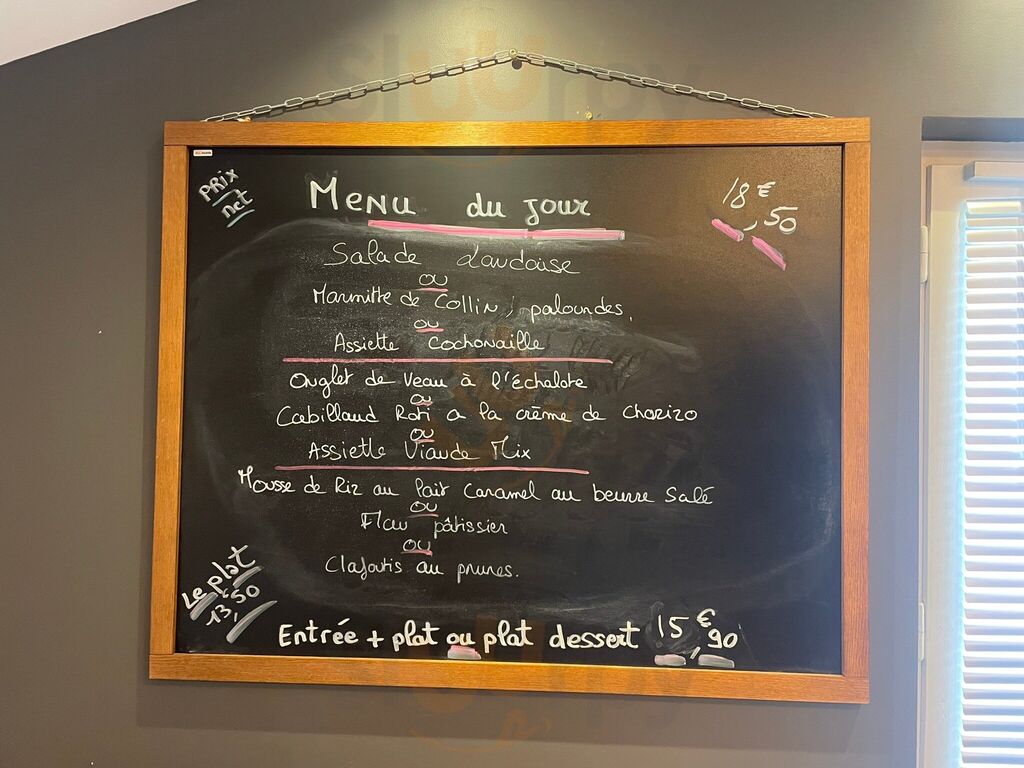 Prix
net
Menu du jour
18€,50
Salade Landaise
ou
Marmitte de Collin, palourdes.
ou
Assiette Cochonaille
Onglet de Veau à l'échalote
ou
Cabillaud Roti a la crème de Chorizo
ou
Assiette Viande Mix
Mousse de Riz au lait Caramel au beurre Salé
ou
Flan pâtissier
ou
Clafoutis au prunes.
Le plat
13,€50
Entrée + plat ou plat dessert 15€,90